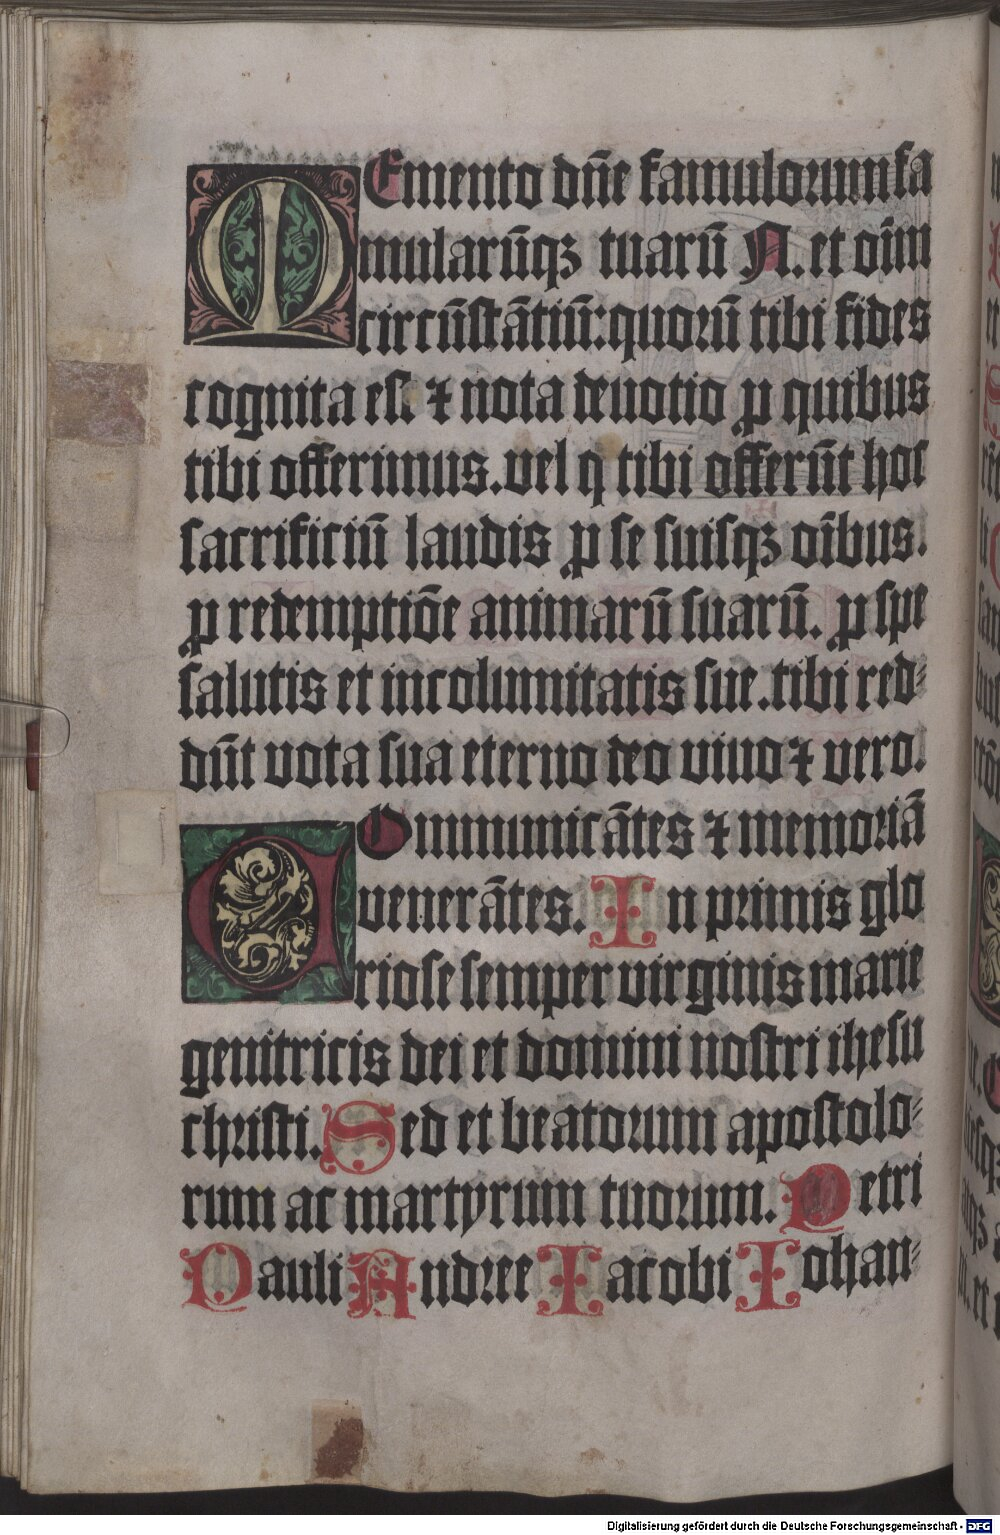 MEmento dñe famulorum fa
mularũqꝫ tuarũ N. et oı̃m
circũstãtiũ: quorũ tibi fides
cognita est ⁊ nota deuotio ꝑ quibus
tibi offerimus. vel q tibi offerũt hoc
sacrificiũ laudis ꝑ se suisqꝫ oı̃bus.
ꝑ redemptiõe animarũ suarũ. ꝑ spe
salutis et incolumitatis sue. tibi red⸗
dũt vota sua eterno deo viuo ⁊ vero.
COmmunicãtes ⁊ memoriã
venerãtes. In primis glo
riose semper virginis marie
genitricis dei et domini nostri ihesu
christi. Sed et beatorum apostolo⸗
rum ac martyrum tuorum. Petri
Pauli Andree Iacobi Iohan⸗
Digitalisierung gefördert durch die Deutsche Forschungsgemeinschaft - DFG